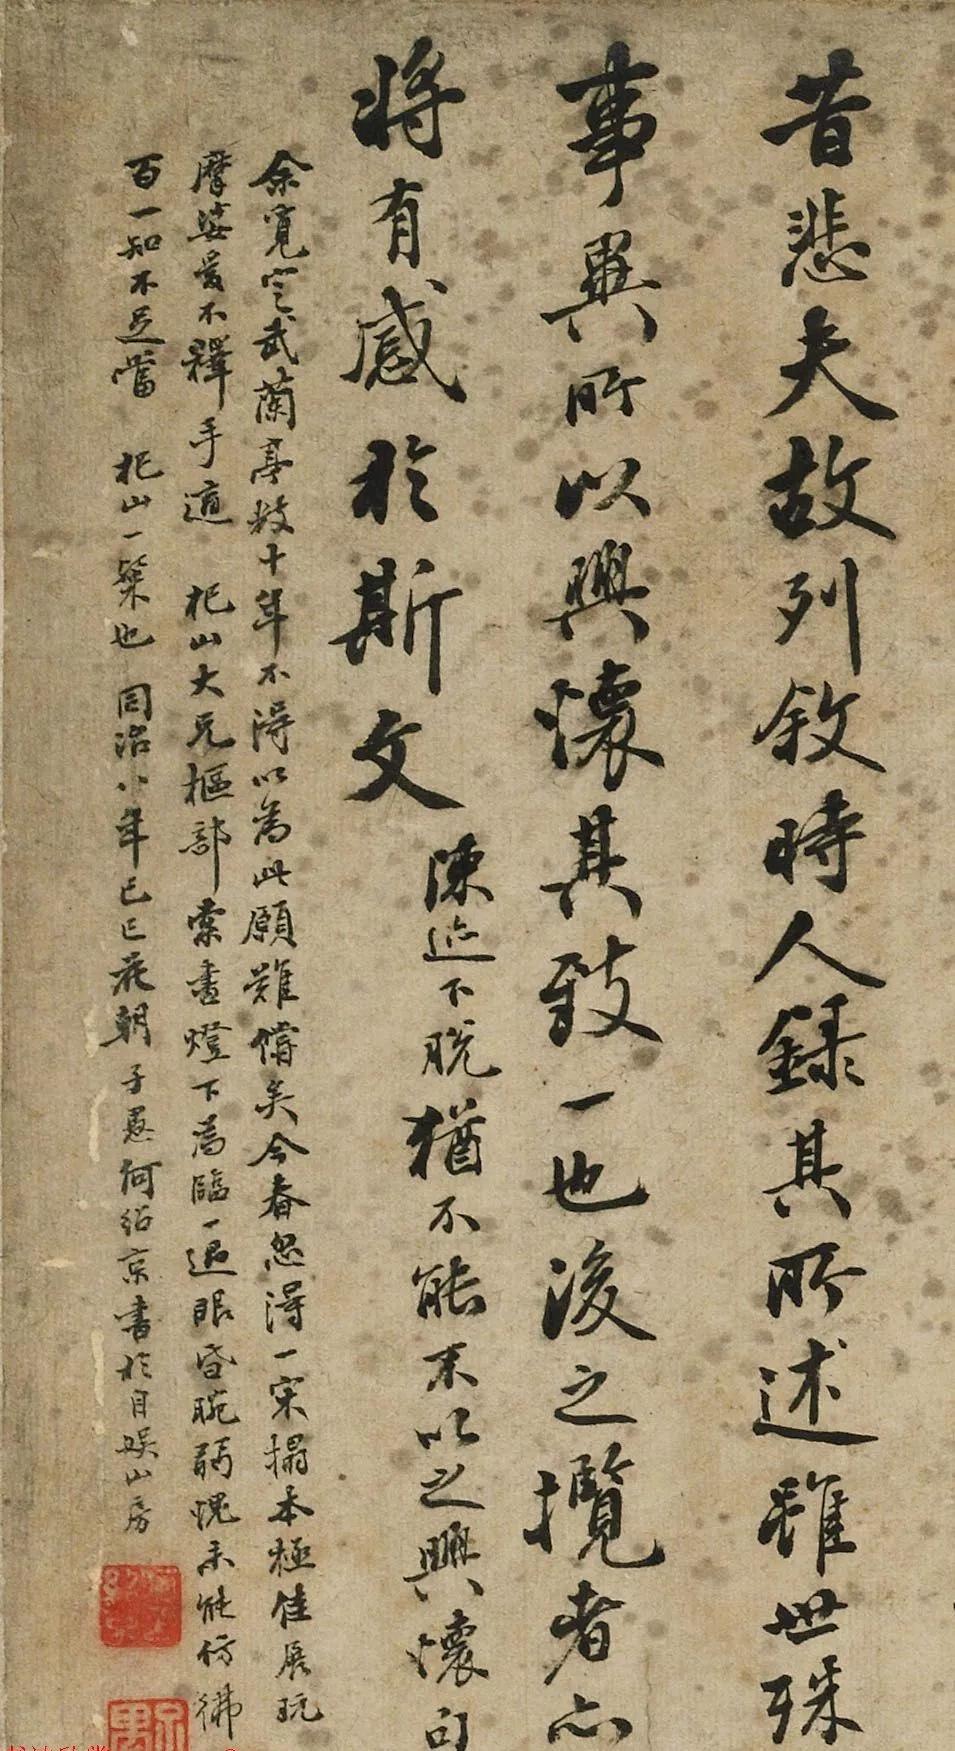 昔悲夫故列敘時人錄其所述雖世殊
事異所以興懷其致一也後之攬者亦
將有感於斯文
陳迹下脫猶不能不以之興懷句
余覓定武蘭亭數十年不得以為此願難償矣今春忽得一宋搨本極佳展玩
摩娑愛不釋手適 杞山大兄樞部索書燈下為臨一過眼昏腕弱愧未能仿彿
百一知不足當 杞山一粲也 同治八年己巳花朝子愚何紹京書於自娛山房